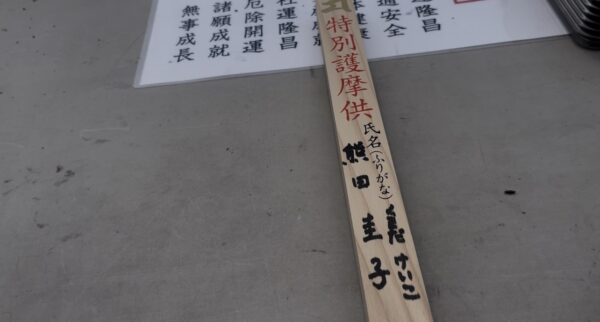 隆昌
通安全
体健康
社運隆昌
厄除開運
諸願成就
無事成長
特別護摩供
氏名(ふりがな)
熊田 圭子
くまだ けいこ